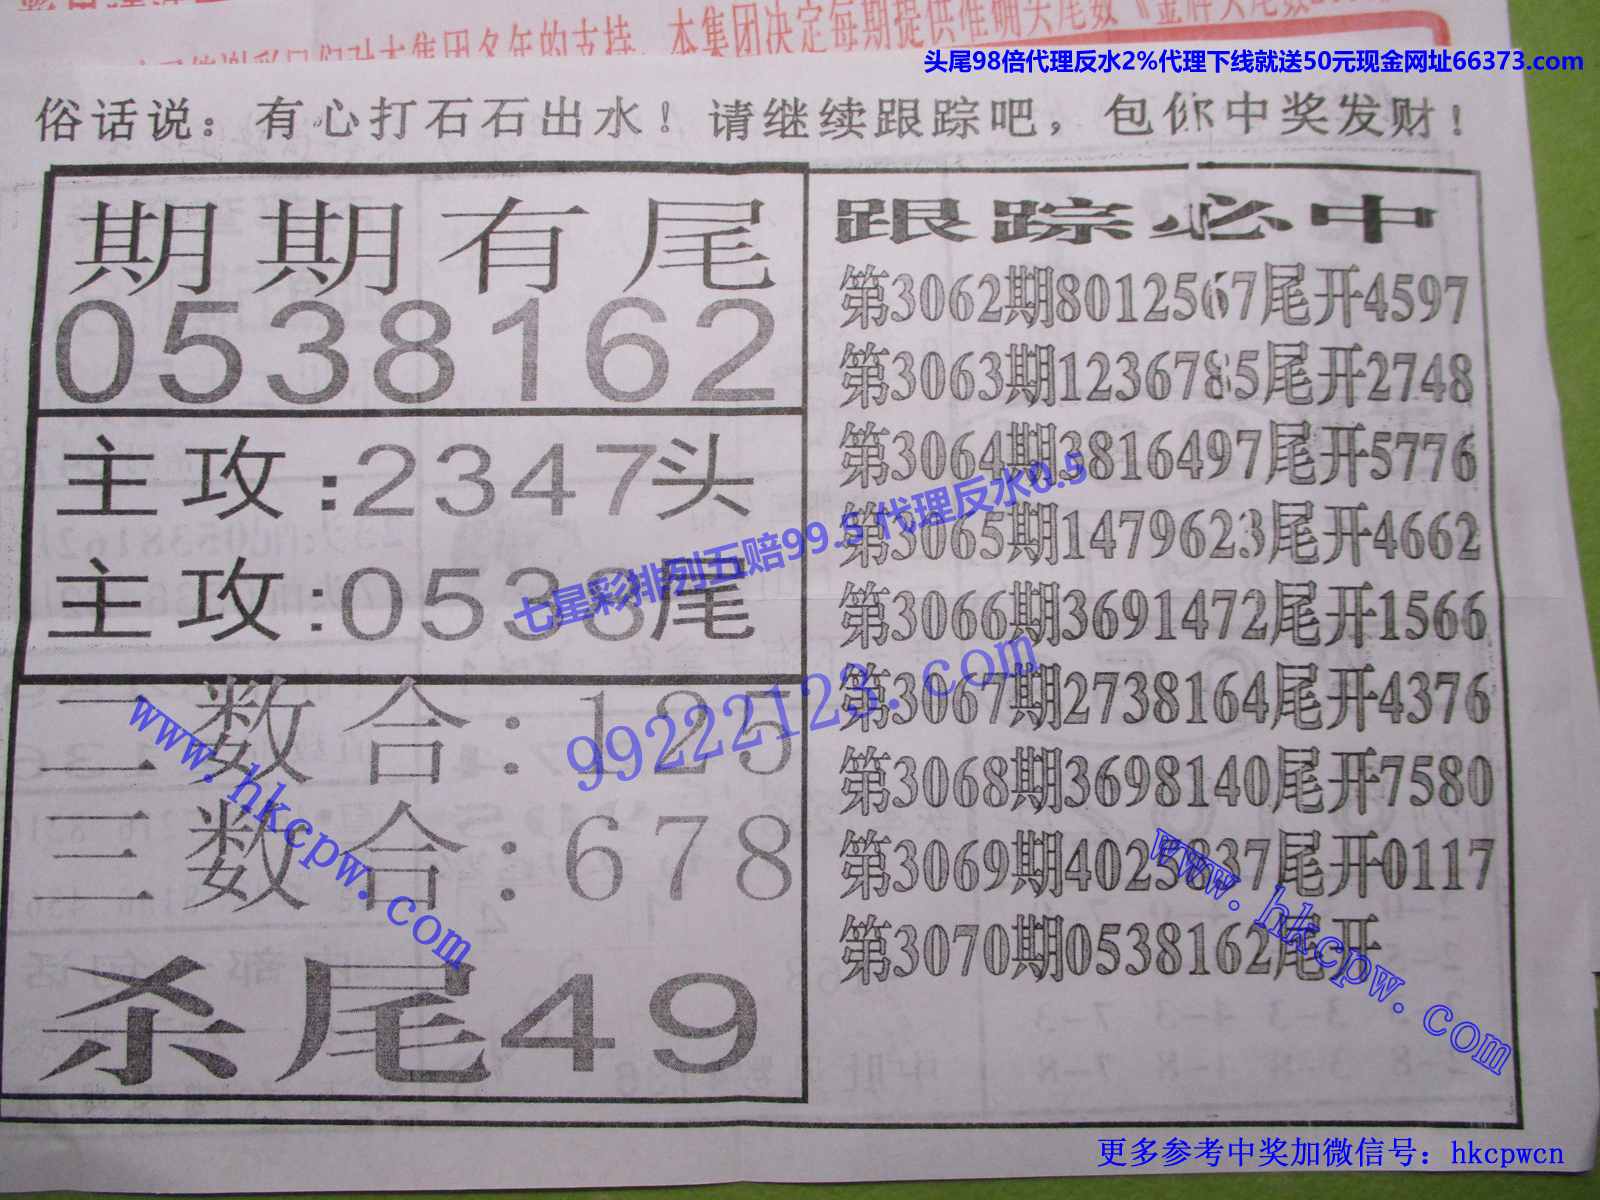 本集团决定每期提供准确头尾数《金牌头尾数
头尾98倍代理反水2%代理下线就送50元现金网址66373.com
俗话说：有心打石石出水！请继续跟踪吧，包你中奖发财！
期期有尾
0538162
主攻:2347头
主攻:0538尾
二数合:125
三数合:678
杀尾49
跟踪必中
第3062期8012567尾开4597
第3063期1236785尾开2748
第3064期3816497尾开5776
第3065期1479623尾开4662
第3066期3691472尾开1566
第3067期2738164尾开4376
第3068期3698140尾开7580
第3069期4025837尾开0117
第3070期0538162尾开
七星彩排列五赔99.5代理反水0.5
99222123.com
www.hkcpw.com
www.hkcpw.com
更多参考中奖加微信号：hkcpwcn